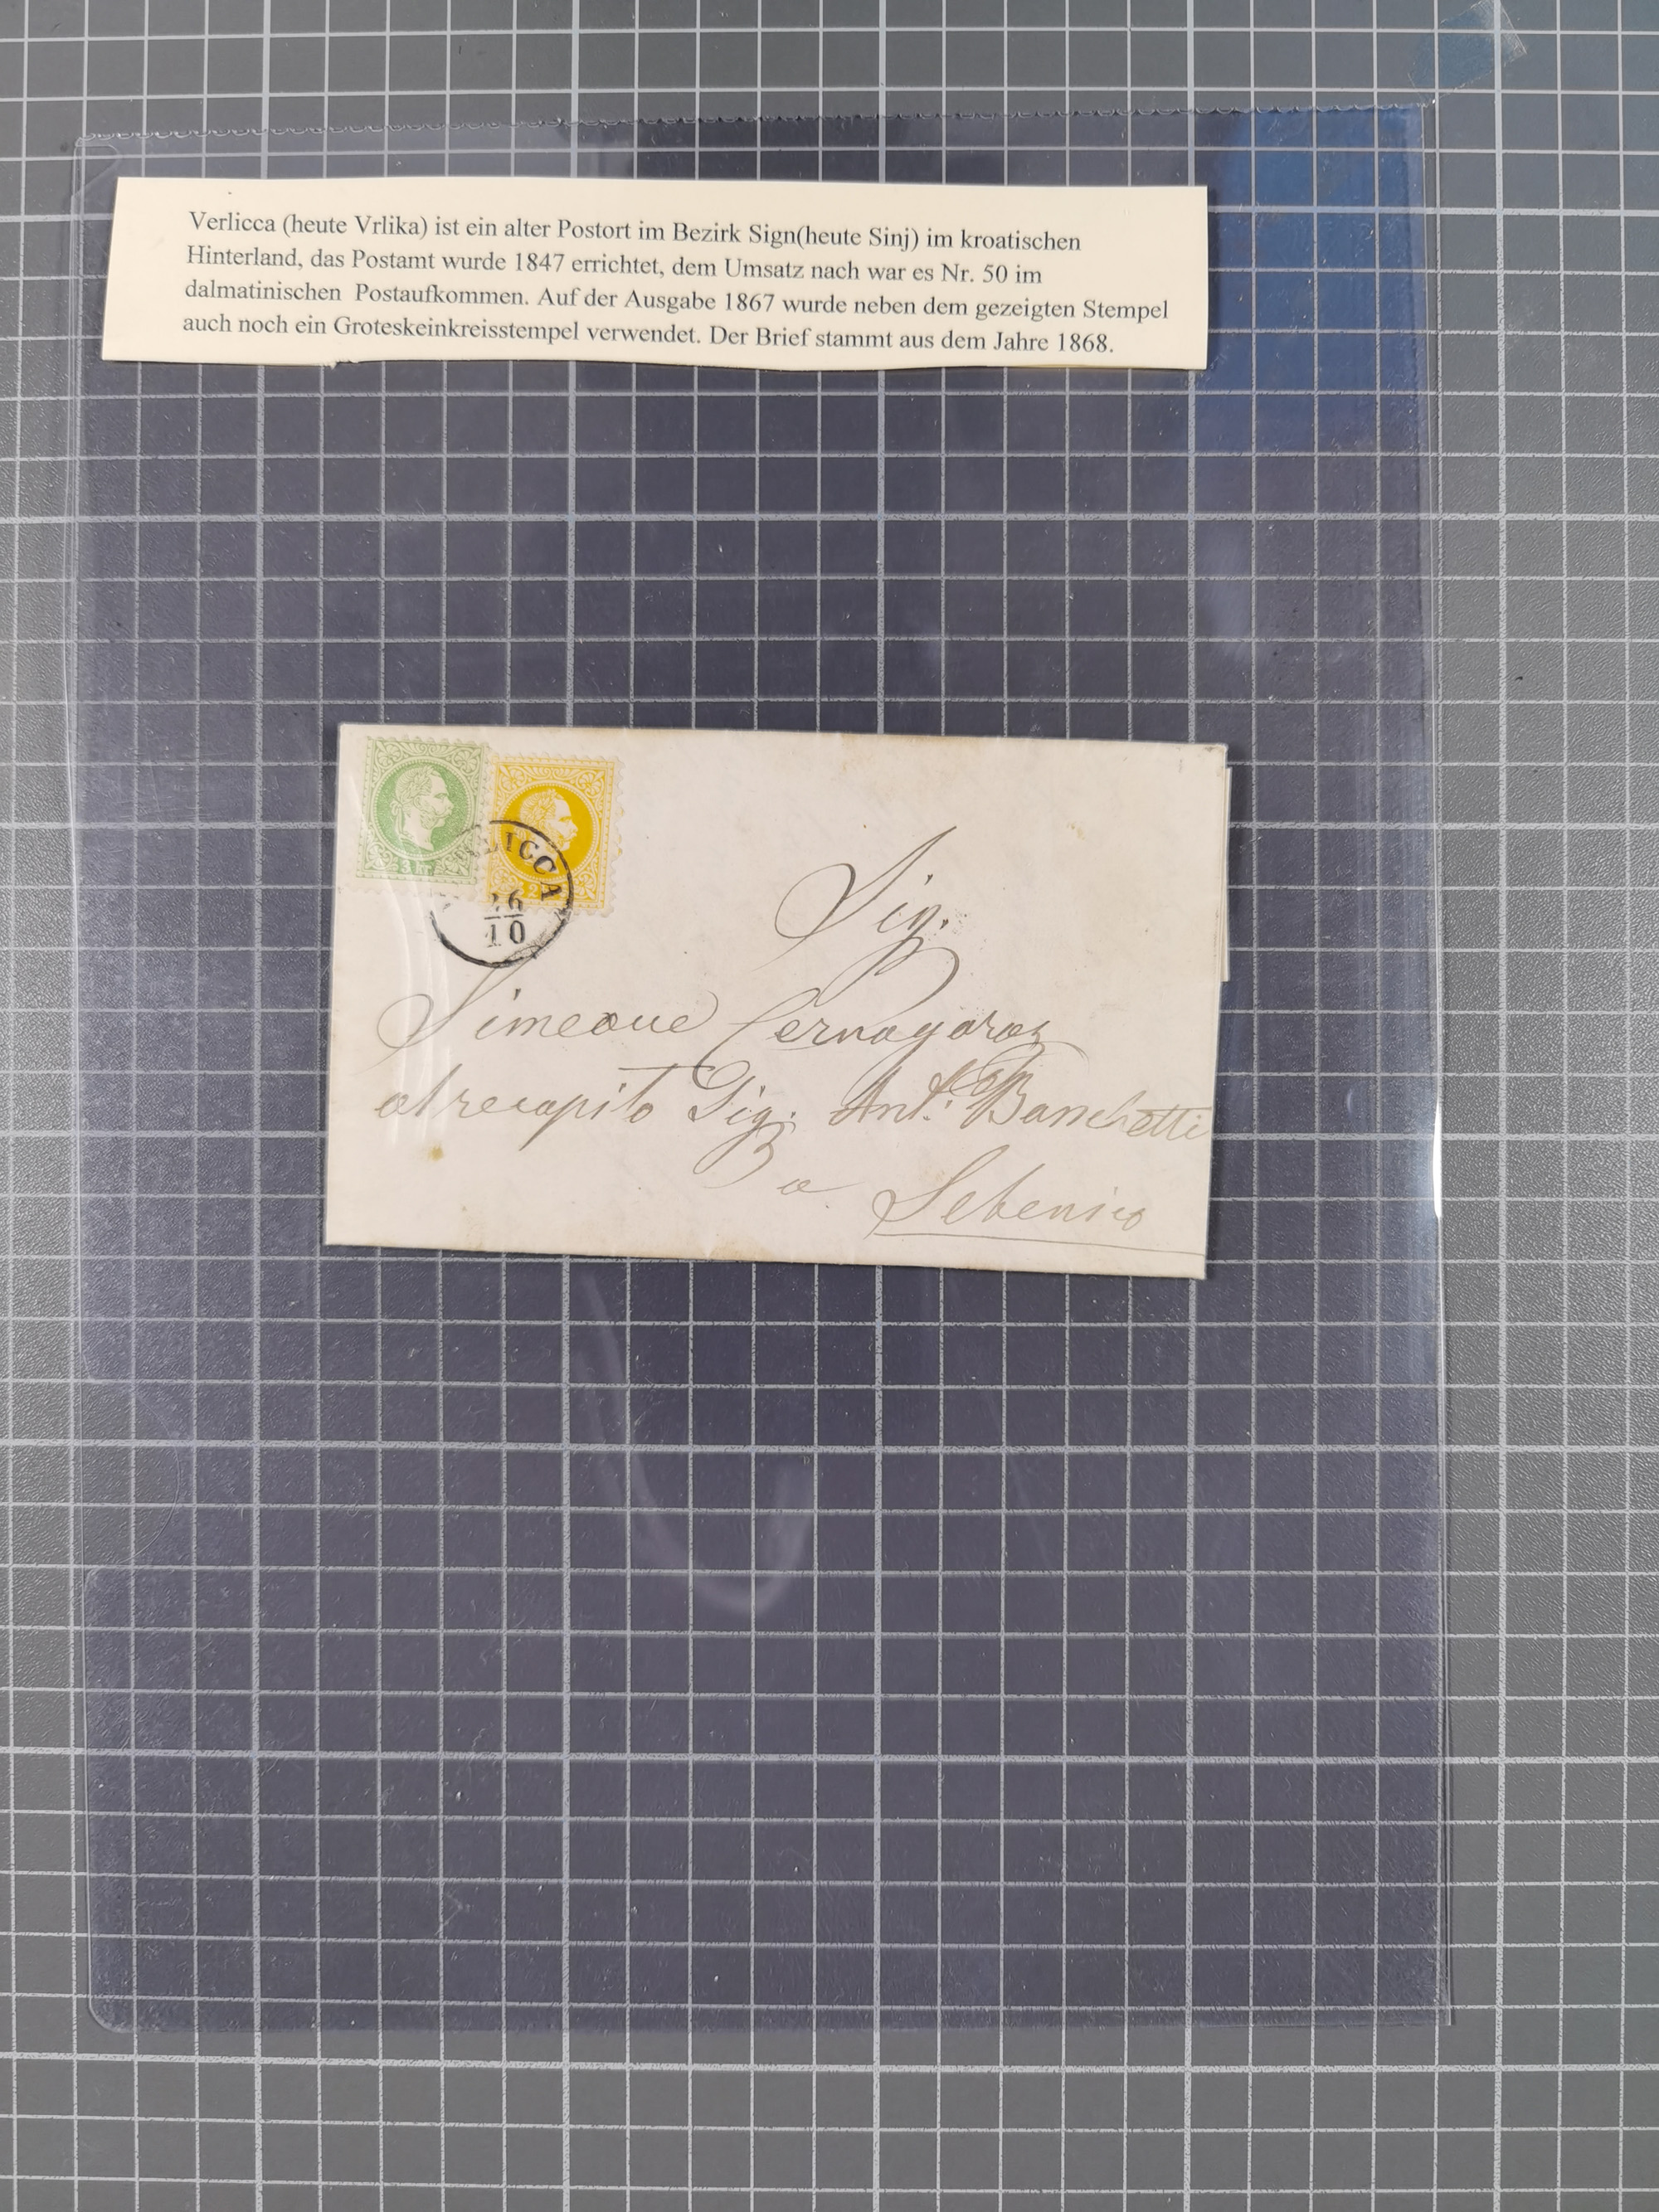 Verlicca (heute Vrlika) ist ein alter Postort im Bezirk Sign(heute Sinj) im kroatischen
Hinterland, das Postamt wurde 1847 errichtet, dem Umsatz nach war es Nr. 50 im
dalmatinischen Postaufkommen. Auf der Ausgabe 1867 wurde neben dem gezeigten Stempel
auch noch ein Groteskeinkreisstempel verwendet. Der Brief stammt aus dem Jahre 1868.
3 kr
2
LICCA
26
10
Sig.
Simeone
al recapito Sig. Ant. Banchetti
a Sebenico